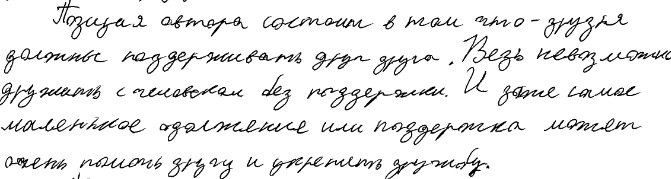 Позиция автора состоит в том что - друзья
должны поддерживать друг друга. Ведь невозможно
дружить с человеком без поддержки. И даже самое
маленькое одолжение или поддержка может
очень помочь другу и укрепить дружбу.